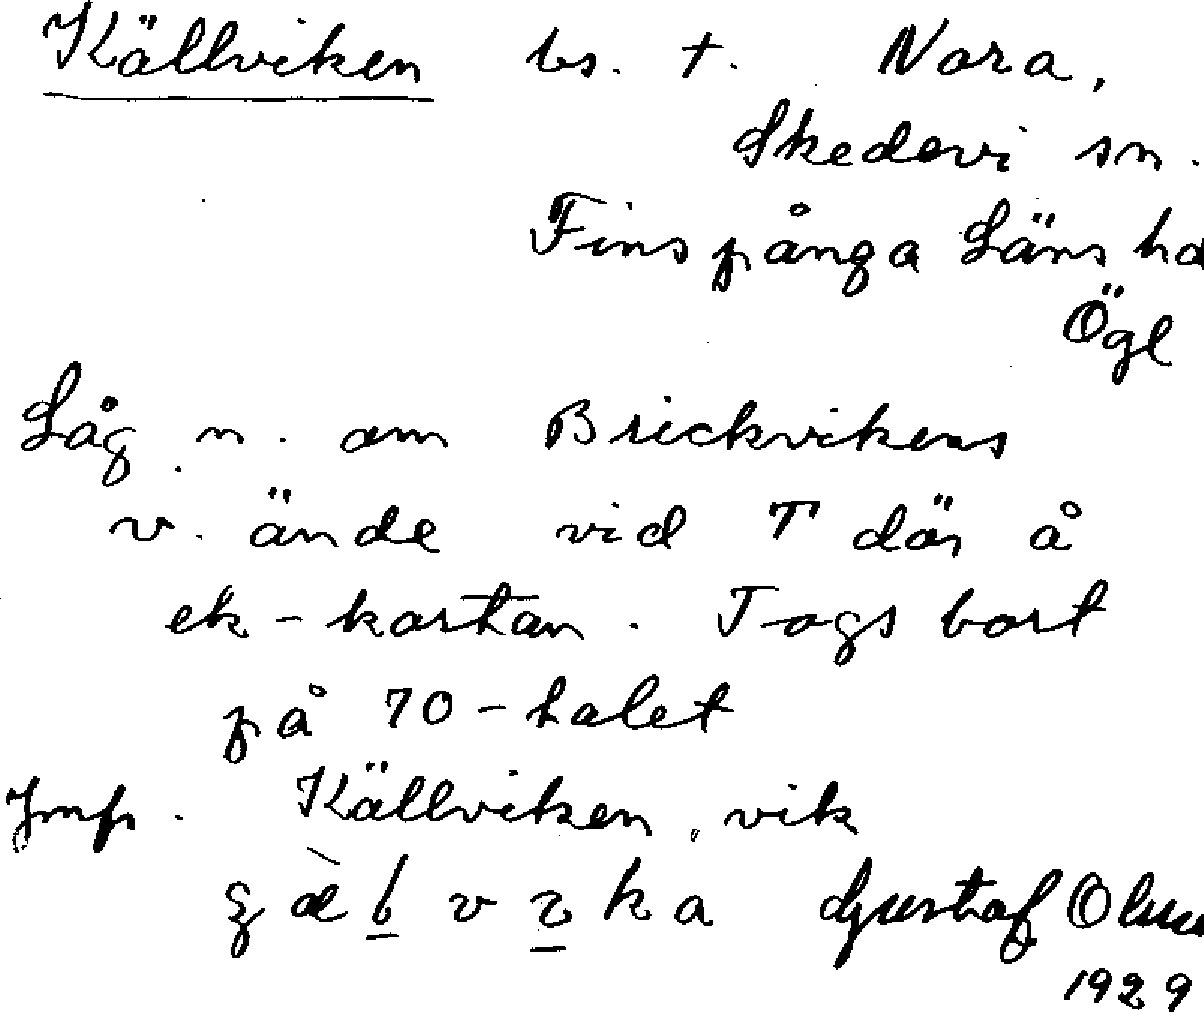 Källviken bs. t. Nora,
Skedevi sn.
Finspånga Läns hd
Ögl
Låg n. om Brickvikens
v. ände vid T där å
ek-kartan. Togs bort
på 70-talet
Jmf. Källviken, vik
Gustaf Olss
1929